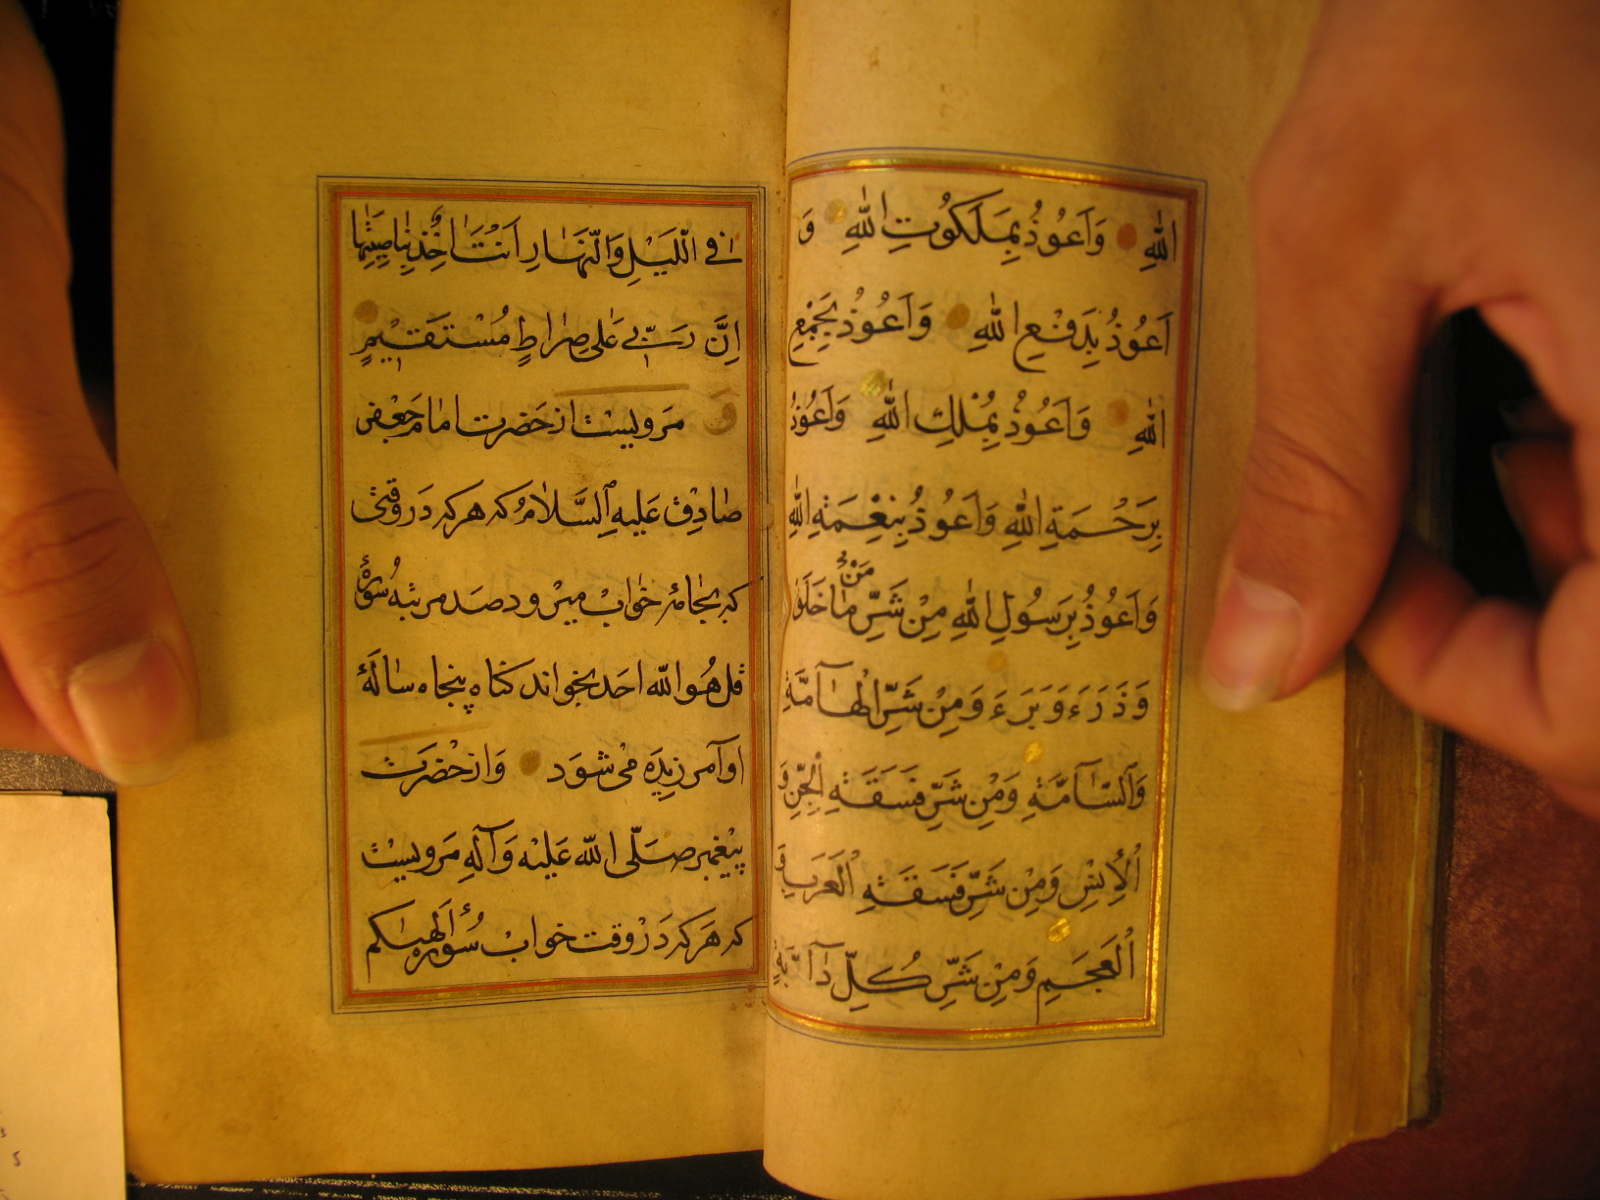 اللهِ وَاَعُوذُ بِمَلَكُوتِ اللهِ وَ
اَعُوذُ بِدَفْعِ اللهِ وَاَعُوذُ بِجَمْعِ
اللهِ وَاَعُوذُ بِمُلْكِ اللهِ وَاَعُوذُ
بِرَحْمَةِ اللهِ وَاَعُوذُ بِنِعْمَةِ اللهِ
وَاَعُوذُ بِرَسُولِ اللهِ مِنْ شَرِّ مٰا خَلَقَ
وَذَرَءَ وَبَرَءَ وَمِنْ شَرِّ الْهٰآمَّةِ
وَالسّٰآمَّةِ وَمِنْ شَرِّ فَسَقَةِ الْجِنِّ وَ
الْاِنْسِ وَمِنْ شَرِّ فَسَقَةِ الْعَرَبِ وَ
الْعَجَمِ وَمِنْ شَرِّ كُلِّ دٰآبَّةٍ
فِى اللَّيْلِ وَالنَّهٰارِ اَنْتَ اٰخِذٌ بِنٰاصِيَتِهٰا
اِنَّ رَبّى عَلٰى صِرٰاطٍ مُسْتَقيمٍ
مرويست از حَضرت امام جَعْفر
صٰادِق عَلَيهِ السَّلامُ كه هركه دَر وقتى
كه بجامهٔ خواب ميرود صد مرتبه سورهٔ
قل هُو الله احد بخواند كناه پنجاه سالهٔ
او آمرزيده مى شود وَاز حْضرَت
پيغمبر صَلّى الله عَليْه وَآلِهِ مَرويسْت
كه هَركه دَرْ وقت خواب سُورهٔ الهيكم